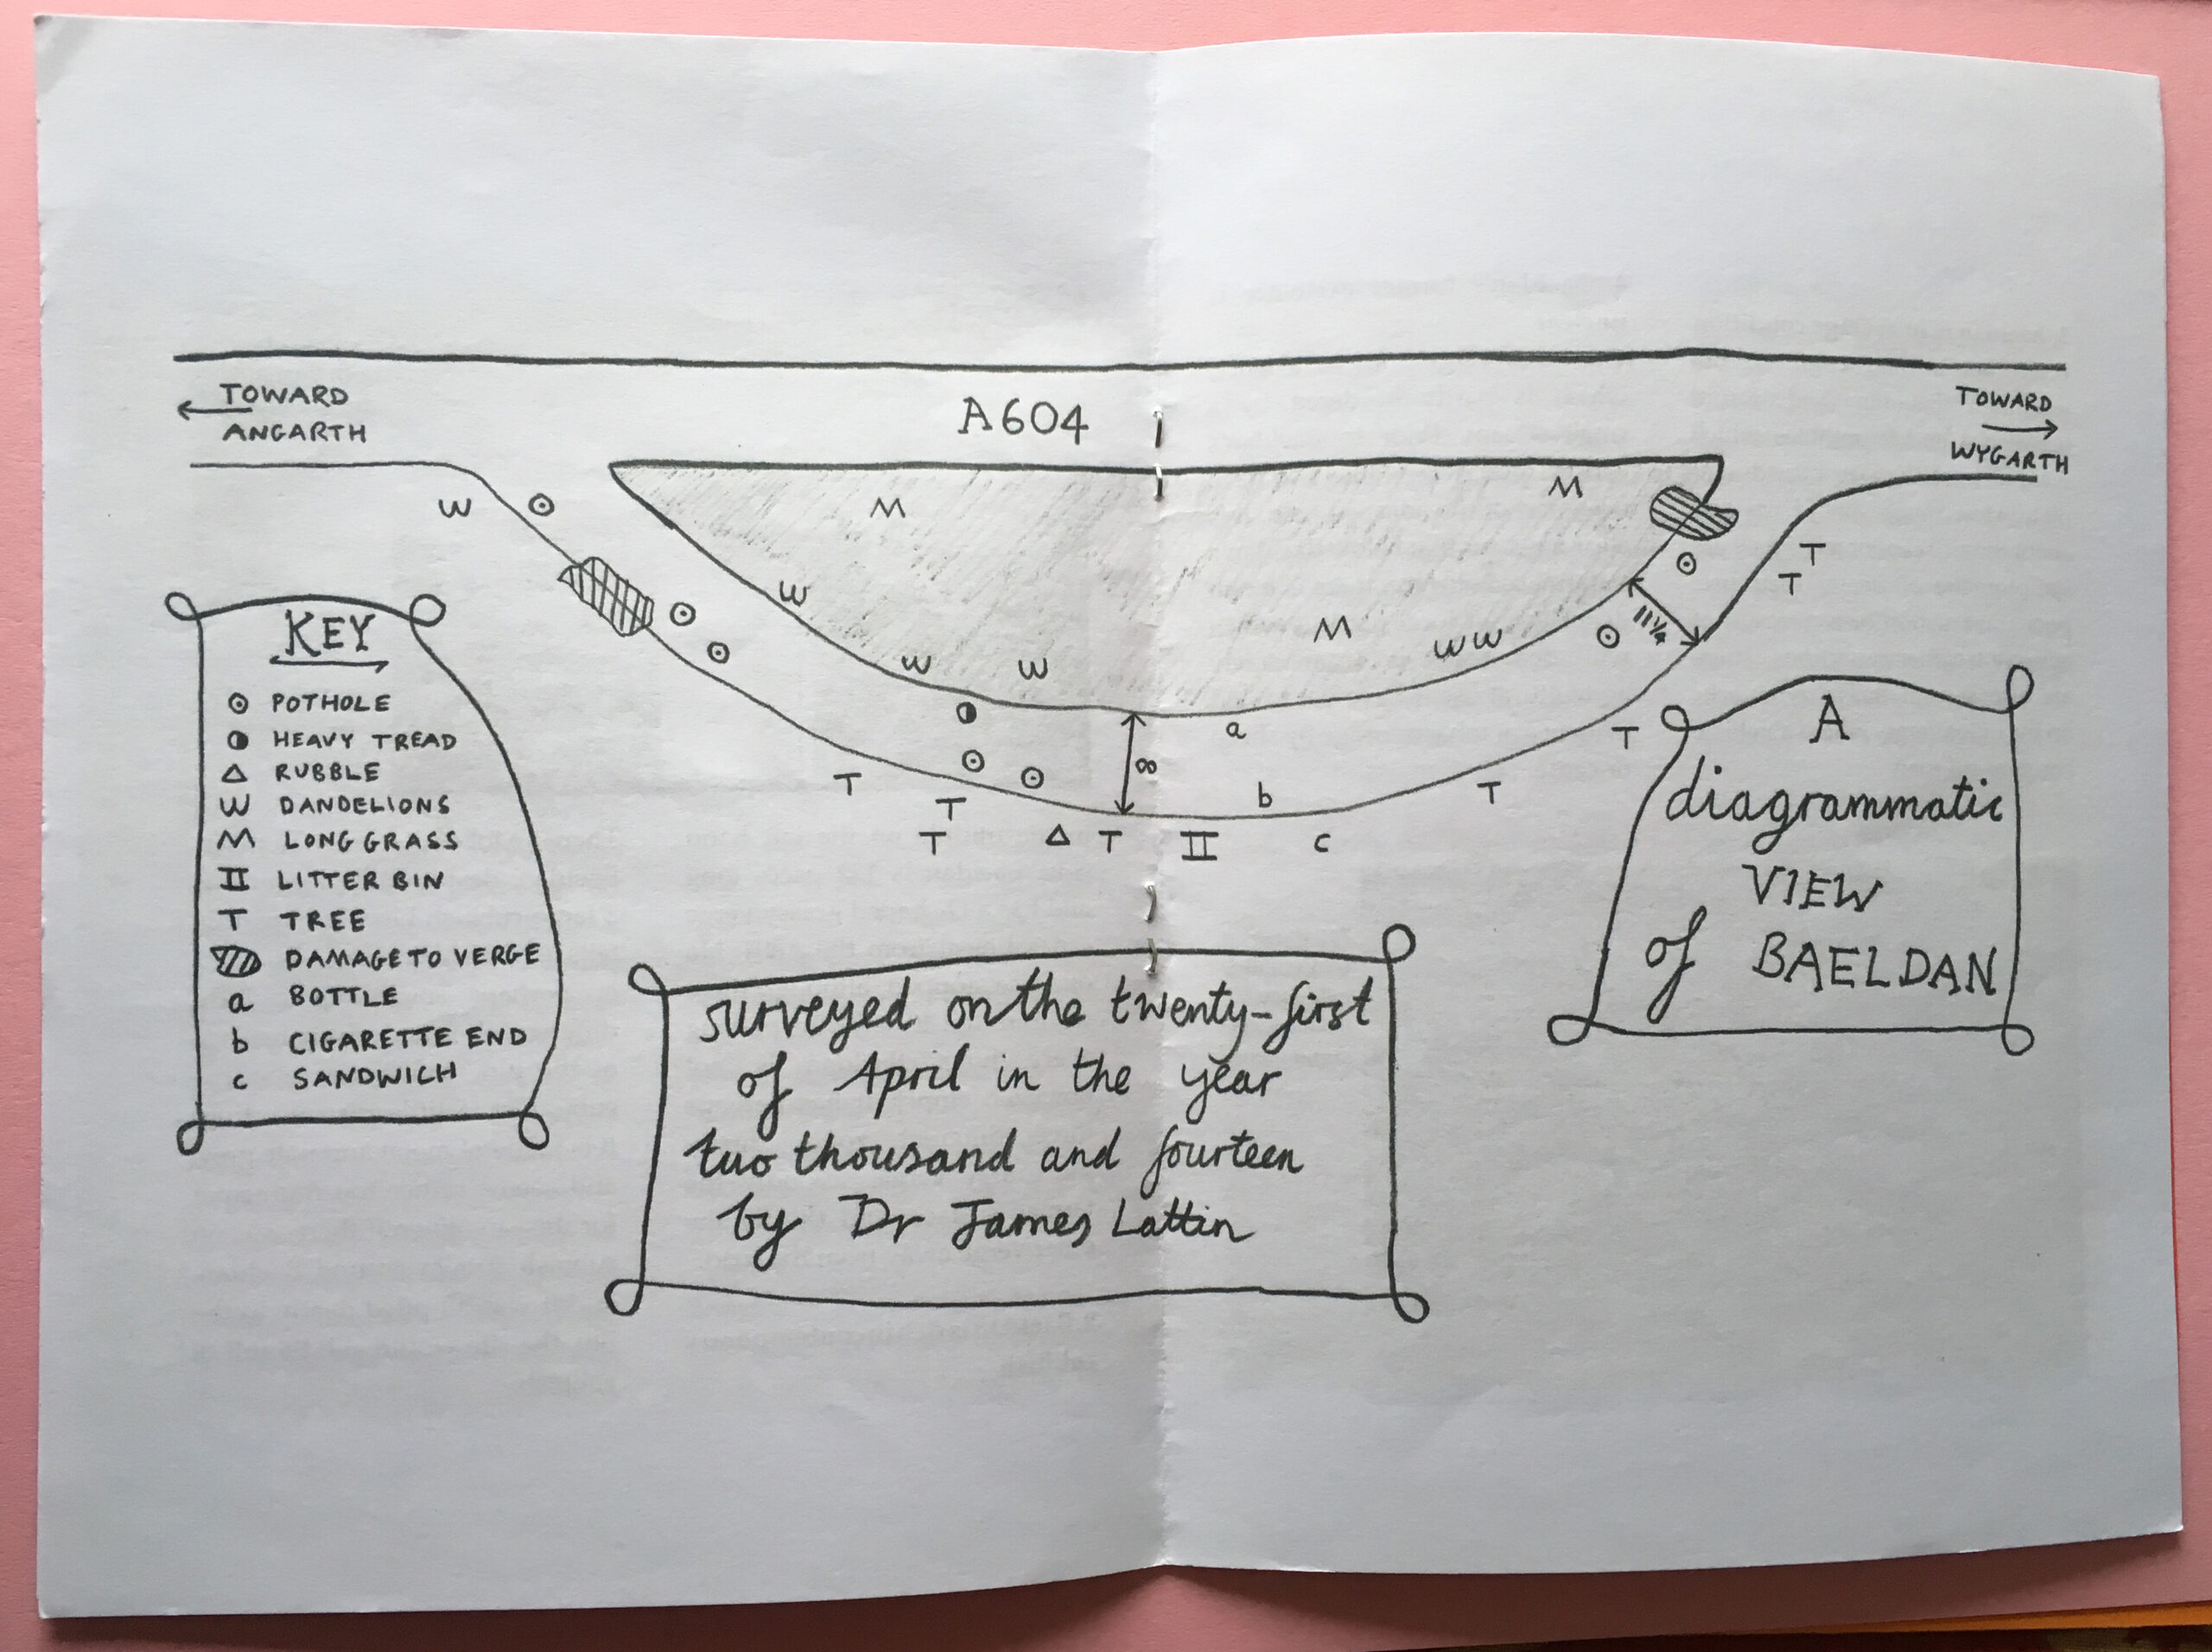 TOWARD
ANGARTH
A604
TOWARD
WYGARTH
M
M
W
W
M
W W
W
W
11¼
T
T
KEY
POTHOLE
HEAVY TREAD
RUBBLE
W DANDELIONS
M LONG GRASS
II LITTER BIN
T TREE
DAMAGE TO VERGE
a BOTTLE
b CIGARETTE END
c SANDWICH
a
8
b
T
T
T
T
II
c
T
T
A
diagrammatic
VIEW
of BAELDAN
surveyed on the twenty-first
of April in the year
two thousand and fourteen
by Dr James Lattin